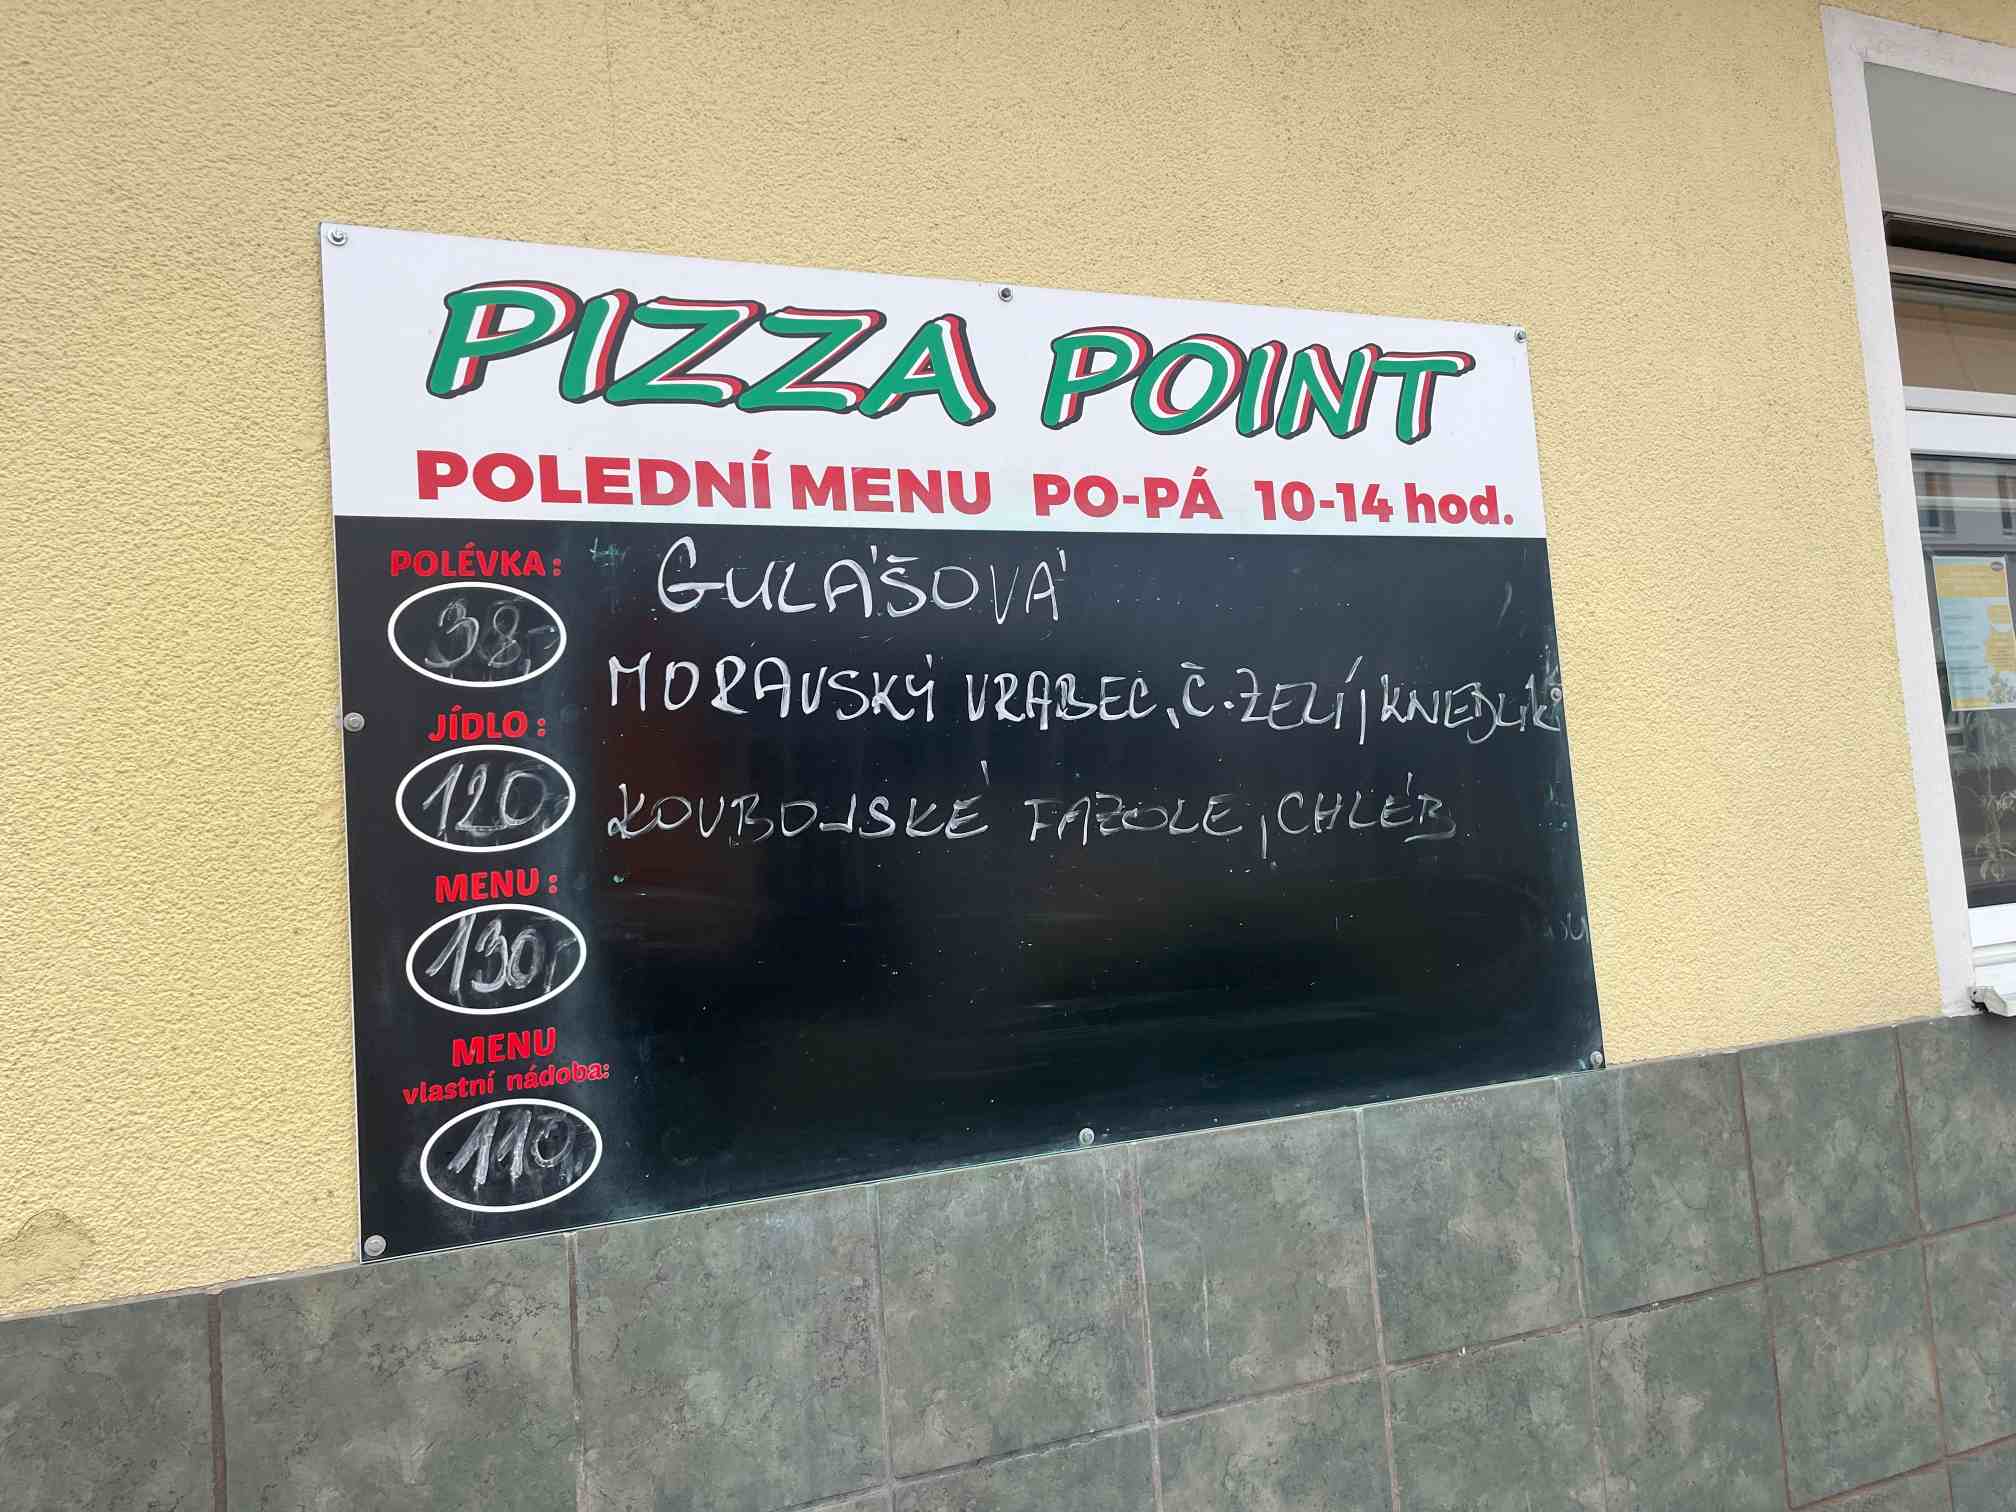 PIZZA POINT
POLEDNÍ MENU PO-PÁ 10-14 hod.
POLÉVKA:
38,-
GULÁŠOVÁ
JÍDLO:
120,-
MORAVSKÝ VRABEC, Č. ZELÍ, KNEDLÍK
KOVBOJSKÉ FAZOLE, CHLÉB
MENU:
130,-
MENU
vlastní nádoba:
110,-